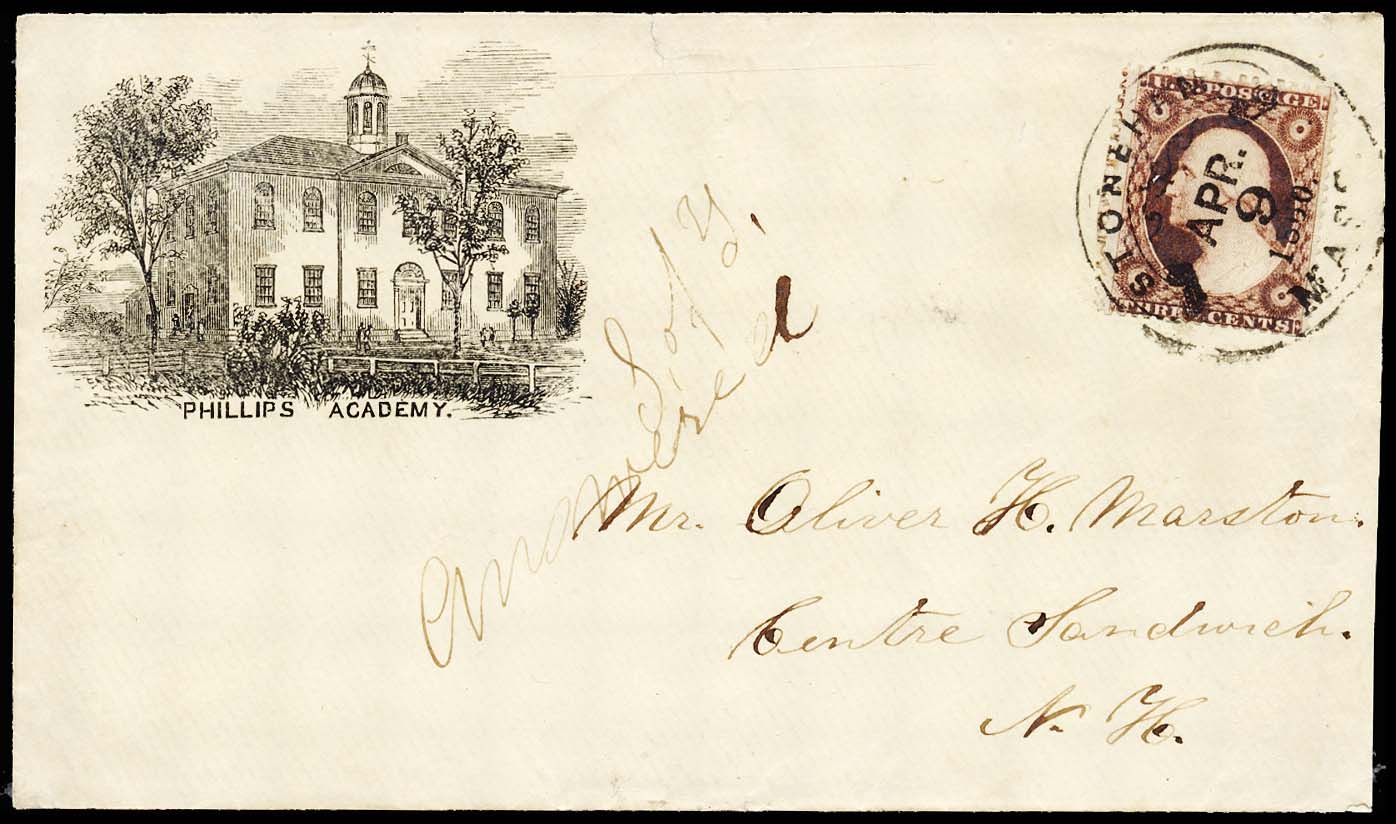 PHILLIPS ACADEMY.
U.S. POSTAGE
CENTS
STONEHAM
APR.
9
1860.
MASS
Answered
Mr. Oliver H. Marston.
Centre Sandwich.
N. H.